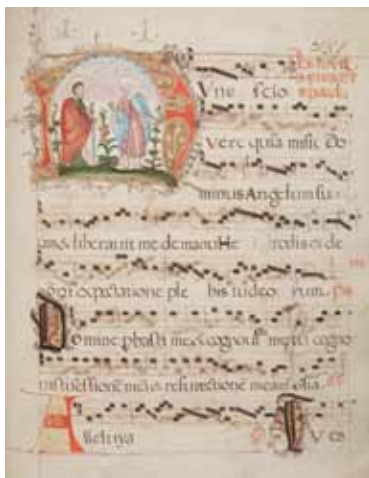 Unc scio
vere quia misit Do
minus Angelum su
um & liberavit me de manu He rodis et de
expectatione ple bis iudeo rum ps
Domine probasti me et cognovisti me tu cogno
visti sessionē meā et resurrectionē meam
Alleluya Tu es